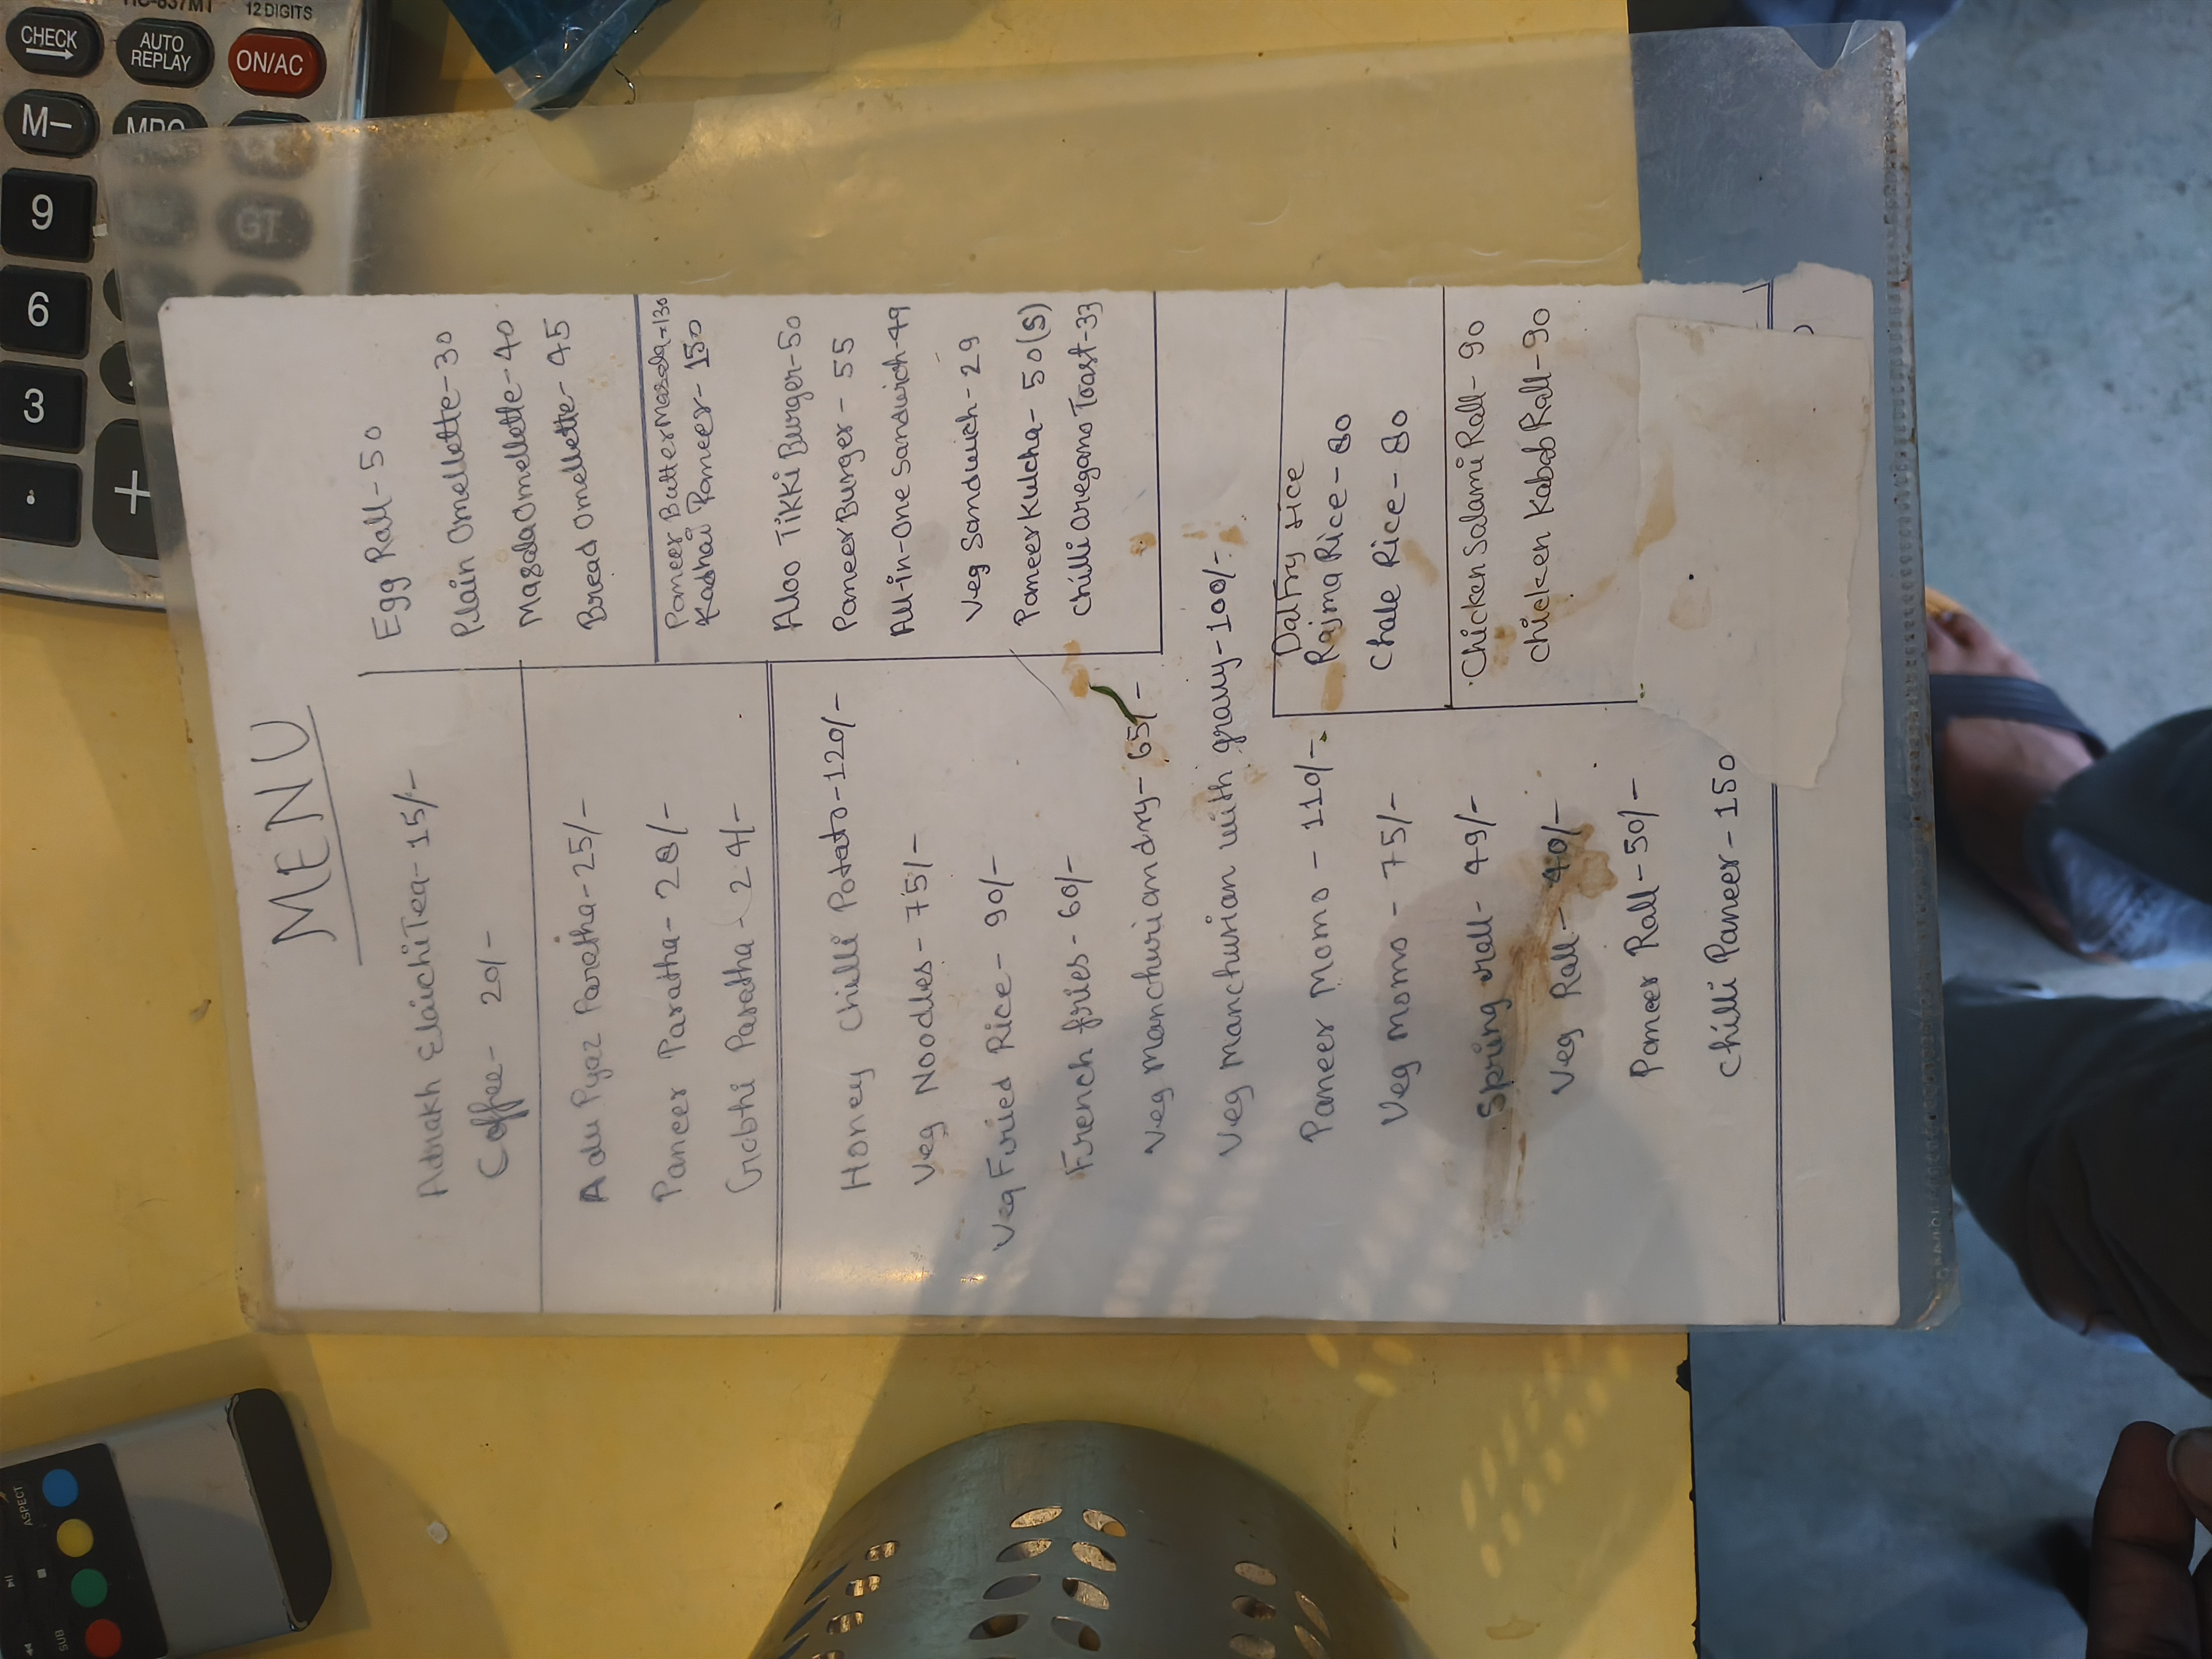 MENU
Adrakh Elaichi Tea - 15/-
Coffee - 20/-
Aalu Pyaz Paratha - 25/-
Paneer Paratha - 28/-
Gobhi Paratha - 24/-
Honey Chilli Potato - 120/-
Veg Noodles - 75/-
Veg Fried Rice - 90/-
French fries - 60/-
Veg Manchurian dry - 65/-
Veg Manchurian with gravy - 100/-
Paneer Momo - 110/-
Veg Momo - 75/-
Spring roll - 49/-
Veg Roll - 40/-
Paneer Roll - 50/-
Chilli Paneer - 150
Egg Roll - 50
Plain Omellette - 30
Masala Omellette - 40
Bread Omellette - 45
Paneer Butter Masala - 130
Kadhai Paneer - 150
Aloo Tikki Burger - 50
Paneer Burger - 55
All-in-One Sandwich - 49
Veg Sandwich - 29
Paneer Kulcha - 50(S)
Chilli oregano Toast - 33
Dal Fry rice
Rajma Rice - 80
Chole Rice - 80
Chicken Salami Roll - 90
Chicken Kabab Roll - 90
12 DIGITS
CHECK
AUTO REPLAY
ON/AC
M-
9
GT
6
3
.
+
ASPECT
SUB